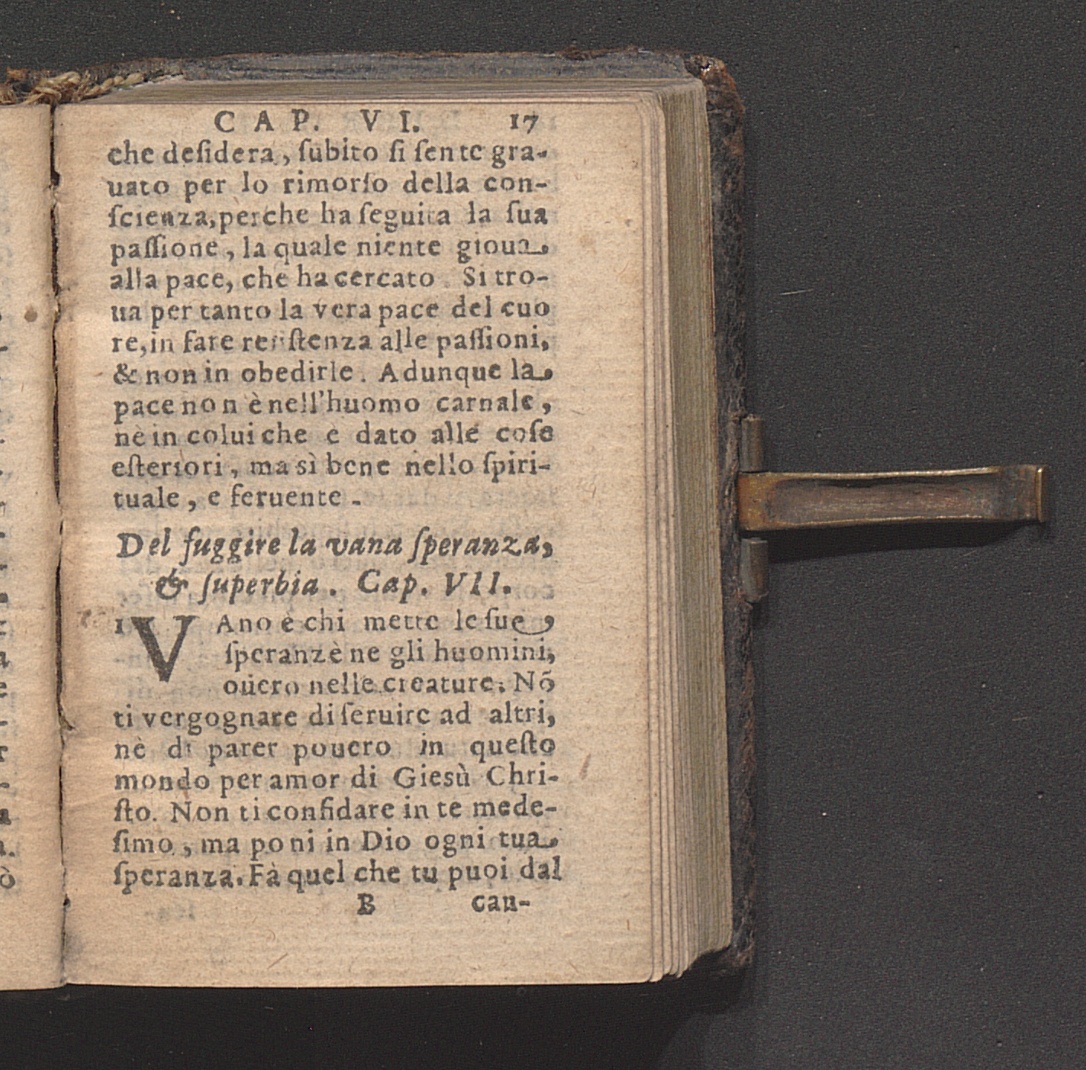 CAP. VI. 17
che deſidera, ſubito ſi ſente gra-
uato per lo rimorſo della con-
ſcienza, perche ha ſeguita la ſua
paſſione, la quale niente gioua
alla pace, che ha cercato. Si tro-
ua per tanto la vera pace del cuo
re, in fare reſiſtenza alle paſſioni,
& non in obedirle. Adunque la
pace non è nell'huomo carnale,
nè in colui che è dato alle coſe
eſteriori, ma sì bene nello ſpiri-
tuale, e feruente.
Del fuggire la vana ſperanza,
& ſuperbia. Cap. VII.
1 VAno è chi mette le ſue
ſperanze ne gli huomini,
ouero nelle creature. Nō
ti vergognare di ſeruire ad altri,
nè di parer pouero in queſto
mondo per amor di Gieſù Chri-
ſto. Non ti confidare in te mede-
ſimo, ma poni in Dio ogni tua
ſperanza. Fà quel che tu puoi dal
B can-